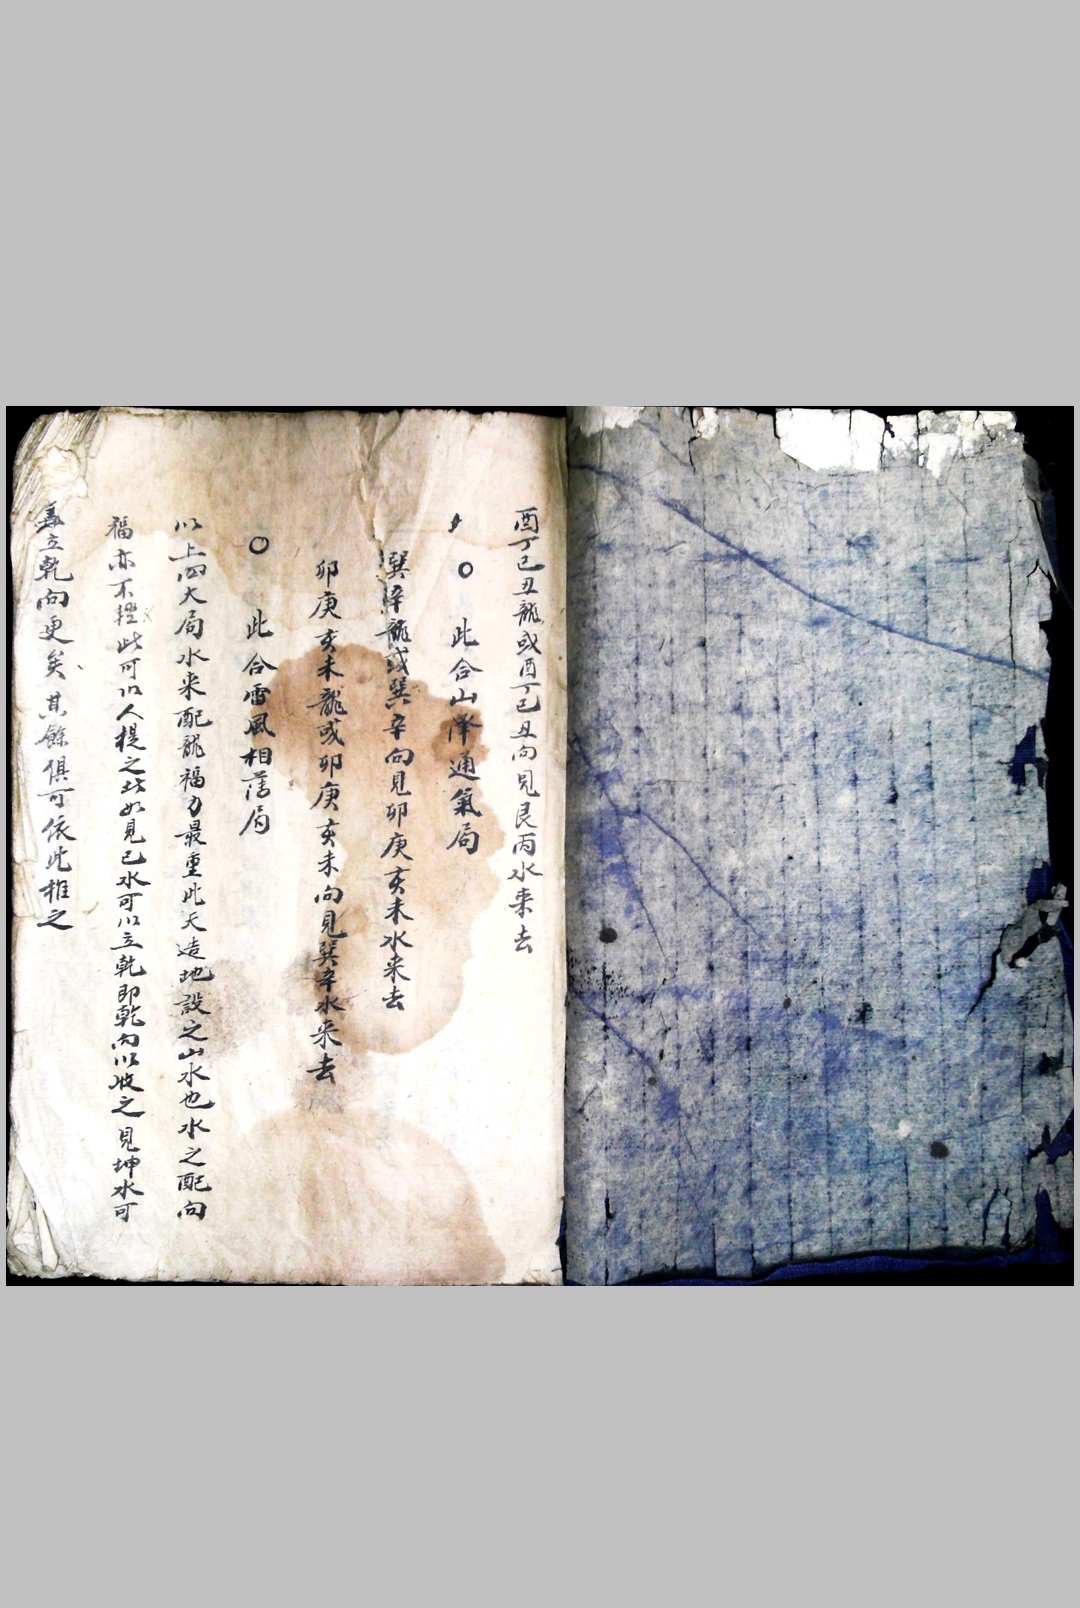 酉丁巳丑龍或酉丁巳丑向見艮丙水来去
○ 此合山澤通氣局
巽辛龍或巽辛向見卯庚亥未水来去
卯庚亥未龍或卯庚亥未向見巽辛水来去
○ 此合雷風相薄局
以上四大局水来配龍福力最重此天造地設之山水也水之配向
福亦不輕此可以人提之此如見巳水可以立乾即乾向以收之見坤水可
立乾向更矣其餘俱可依此推之